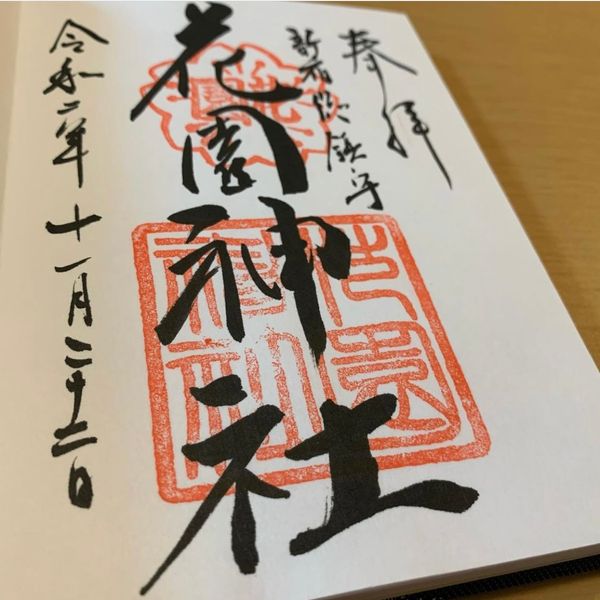 奉拝
新宿総鎮守
花園神社
令和二年十一月二十二日
花園
神社